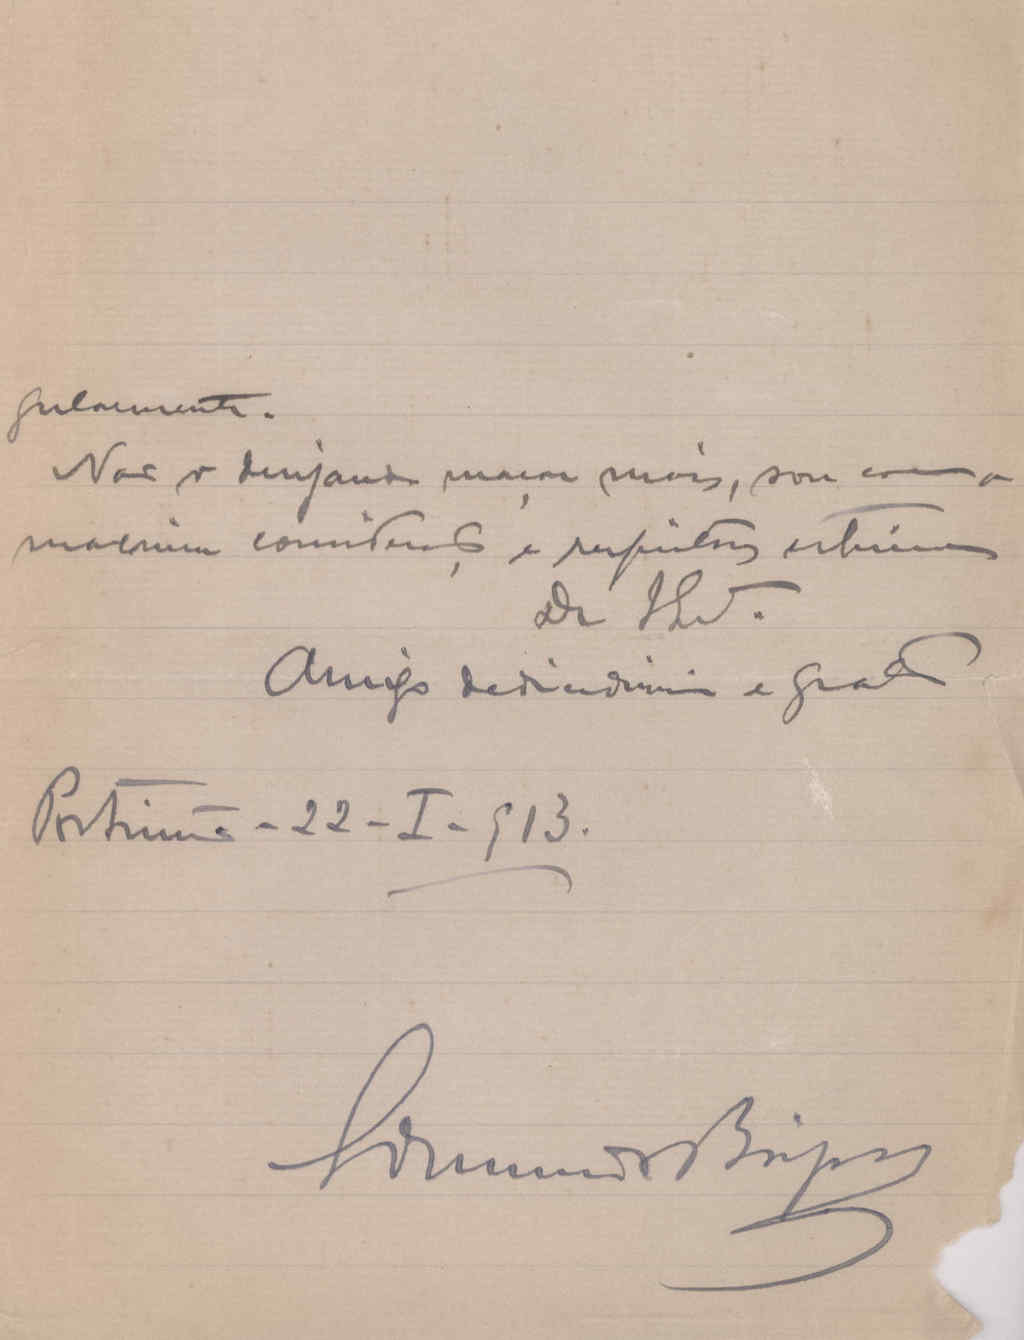 gularmente.
Não o desejando maçar mais, sou com a
maxima consideração e respeitosa estima
De V. Ex.ª
Amigo dedicadissimo e grato
Portimão - 22 - I - 913.